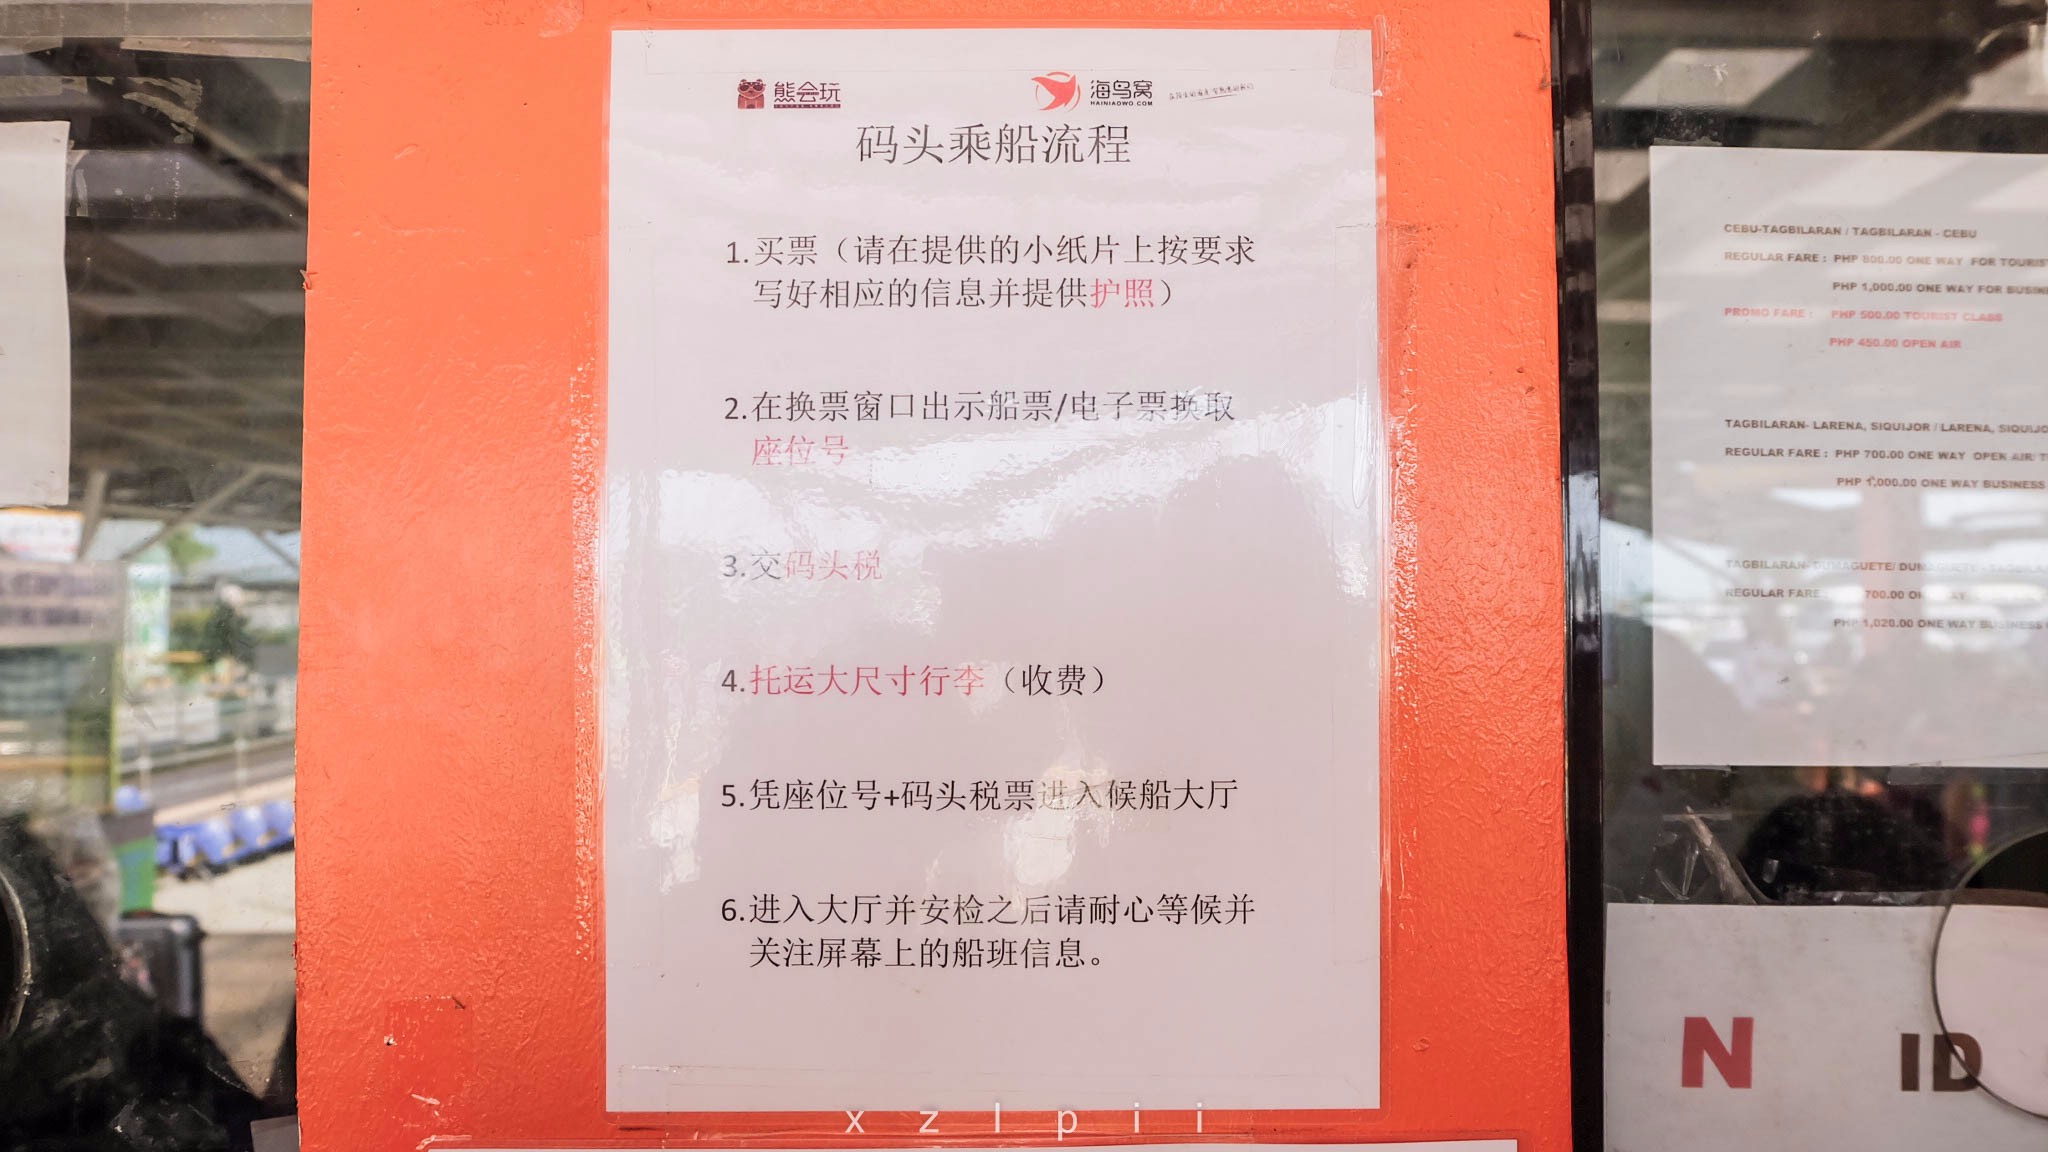 熊会玩
海鸟窝
HAINIAOWO.COM
码头乘船流程
1.买票（请在提供的小纸片上按要求
写好相应的信息并提供护照）
2.在换票窗口出示船票/电子票换取
座位号
3.交码头税
4.托运大尺寸行李（收费）
5.凭座位号+码头税票进入候船大厅
6.进入大厅并安检之后请耐心等候并
关注屏幕上的船班信息。
xzlpii
CEBU-TAGBILARAN / TAGBILARAN - CEBU
REGULAR FARE : PHP 800.00 ONE WAY FOR TOURIST
PHP 1,000.00 ONE WAY FOR BUSIN
PROMO FARE : PHP 500.00 TOURIST CLASS
PHP 450.00 OPEN AIR
TAGBILARAN- LARENA, SIQUIJOR / LARENA, SIQUIJO
REGULAR FARE : PHP 700.00 ONE WAY OPEN AIR/
PHP 1,000.00 ONE WAY BUSINESS
TAGBILARAN- DUMAGUETE/ DUMAGUETE -
REGULAR FARE 700.00 ONE WAY
PHP 1,020.00 ONE WAY BUSINESS
N ID